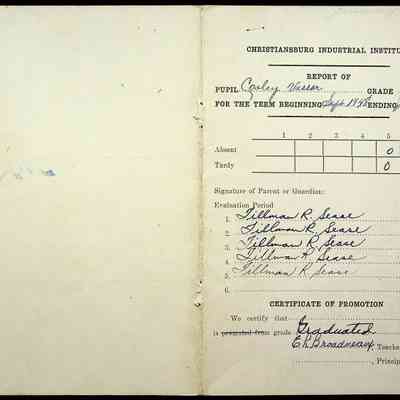 CHRISTIANSBURG INDUSTRIAL INSTITU
REPORT OF
PUPIL Cosley Vasser GRADE
FOR THE TERM BEGINNING Sept 1948 ENDING
1 2 3 4 5
Absent 0
Tardy 0
Signature of Parent or Guardian:
Evaluation Period
1. Tillman R. Sease
2. Tillman R. Sease
3. Tillman R. Sease
4. Tillman R. Sease
5. Tillman R. Sease
6.
CERTIFICATE OF PROMOTION
We certify that
is promoted from grade Graduated
E.R. Broadneaux, Teache
, Princip